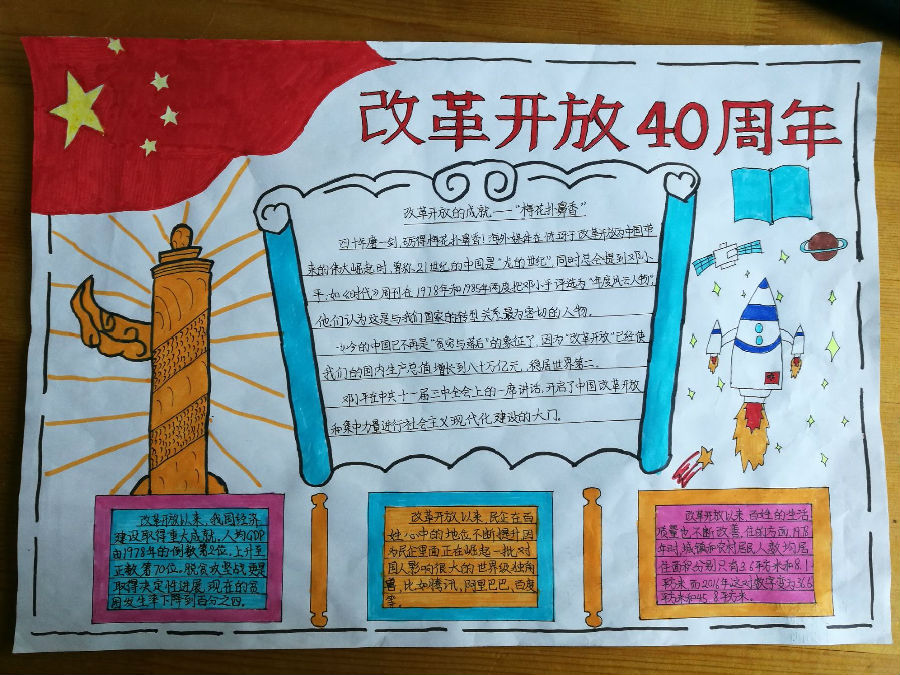 改革开放40周年
改革开放的成就——“梅花扑鼻香”
四十年磨一剑，巧得梅花扑鼻香！海外媒体在优话于改革开放为中国带
来的伟大崛起时，曾称，21世纪的中国是“龙的世纪”，同时总会提到邓小
平，如《时代》周刊在1978年和1985年两度把邓小平评选为“年度风云人物”，
他们认为这是与我们国家的转型关系最为密切的人物。
如今的中国已不再是“贫穷与落后”的象征了，因为“改革开放”已经使
我们的国内生产总值增长到八十万亿元，稳居世界第二。
邓小平在中共十一届三中全会上的一席讲话，开启了中国改革开放
和集中力量进行社会主义现代化建设的大门。
改革开放以来，我国经济
建设取得重大成就。人均GDP
由1978年的倒数第2位，上升至
正数第70位。脱贫攻坚战更是
取得决定性进展，现在的贫
困发生率下降到百分之四。
改革开放以来，民企在百
姓心中的地位不断提升因
为民企里面正在崛起一批对
国人影响很大的世界级独角
兽，比如腾讯，阿里巴巴，百度
等。
改革开放以来，百姓的生活
质量也不断改善，住的方面，1978
年时，城镇和农村居民人数均居
住面积分别只有3.6平方米和8.1
平方米而2016年这对数字变为36.6
平方米和45.8平方米。